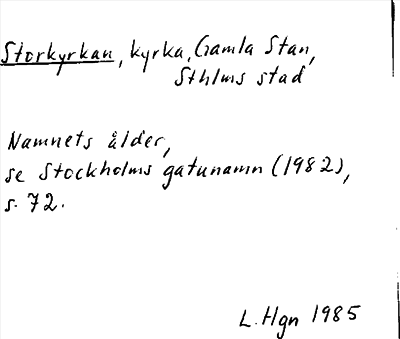 Storkyrkan, kyrka, Gamla Stan,
Sthlms stad
Namnets ålder,
se Stockholms gatunamn (1982),
s. 72.
L. Hgn 1985